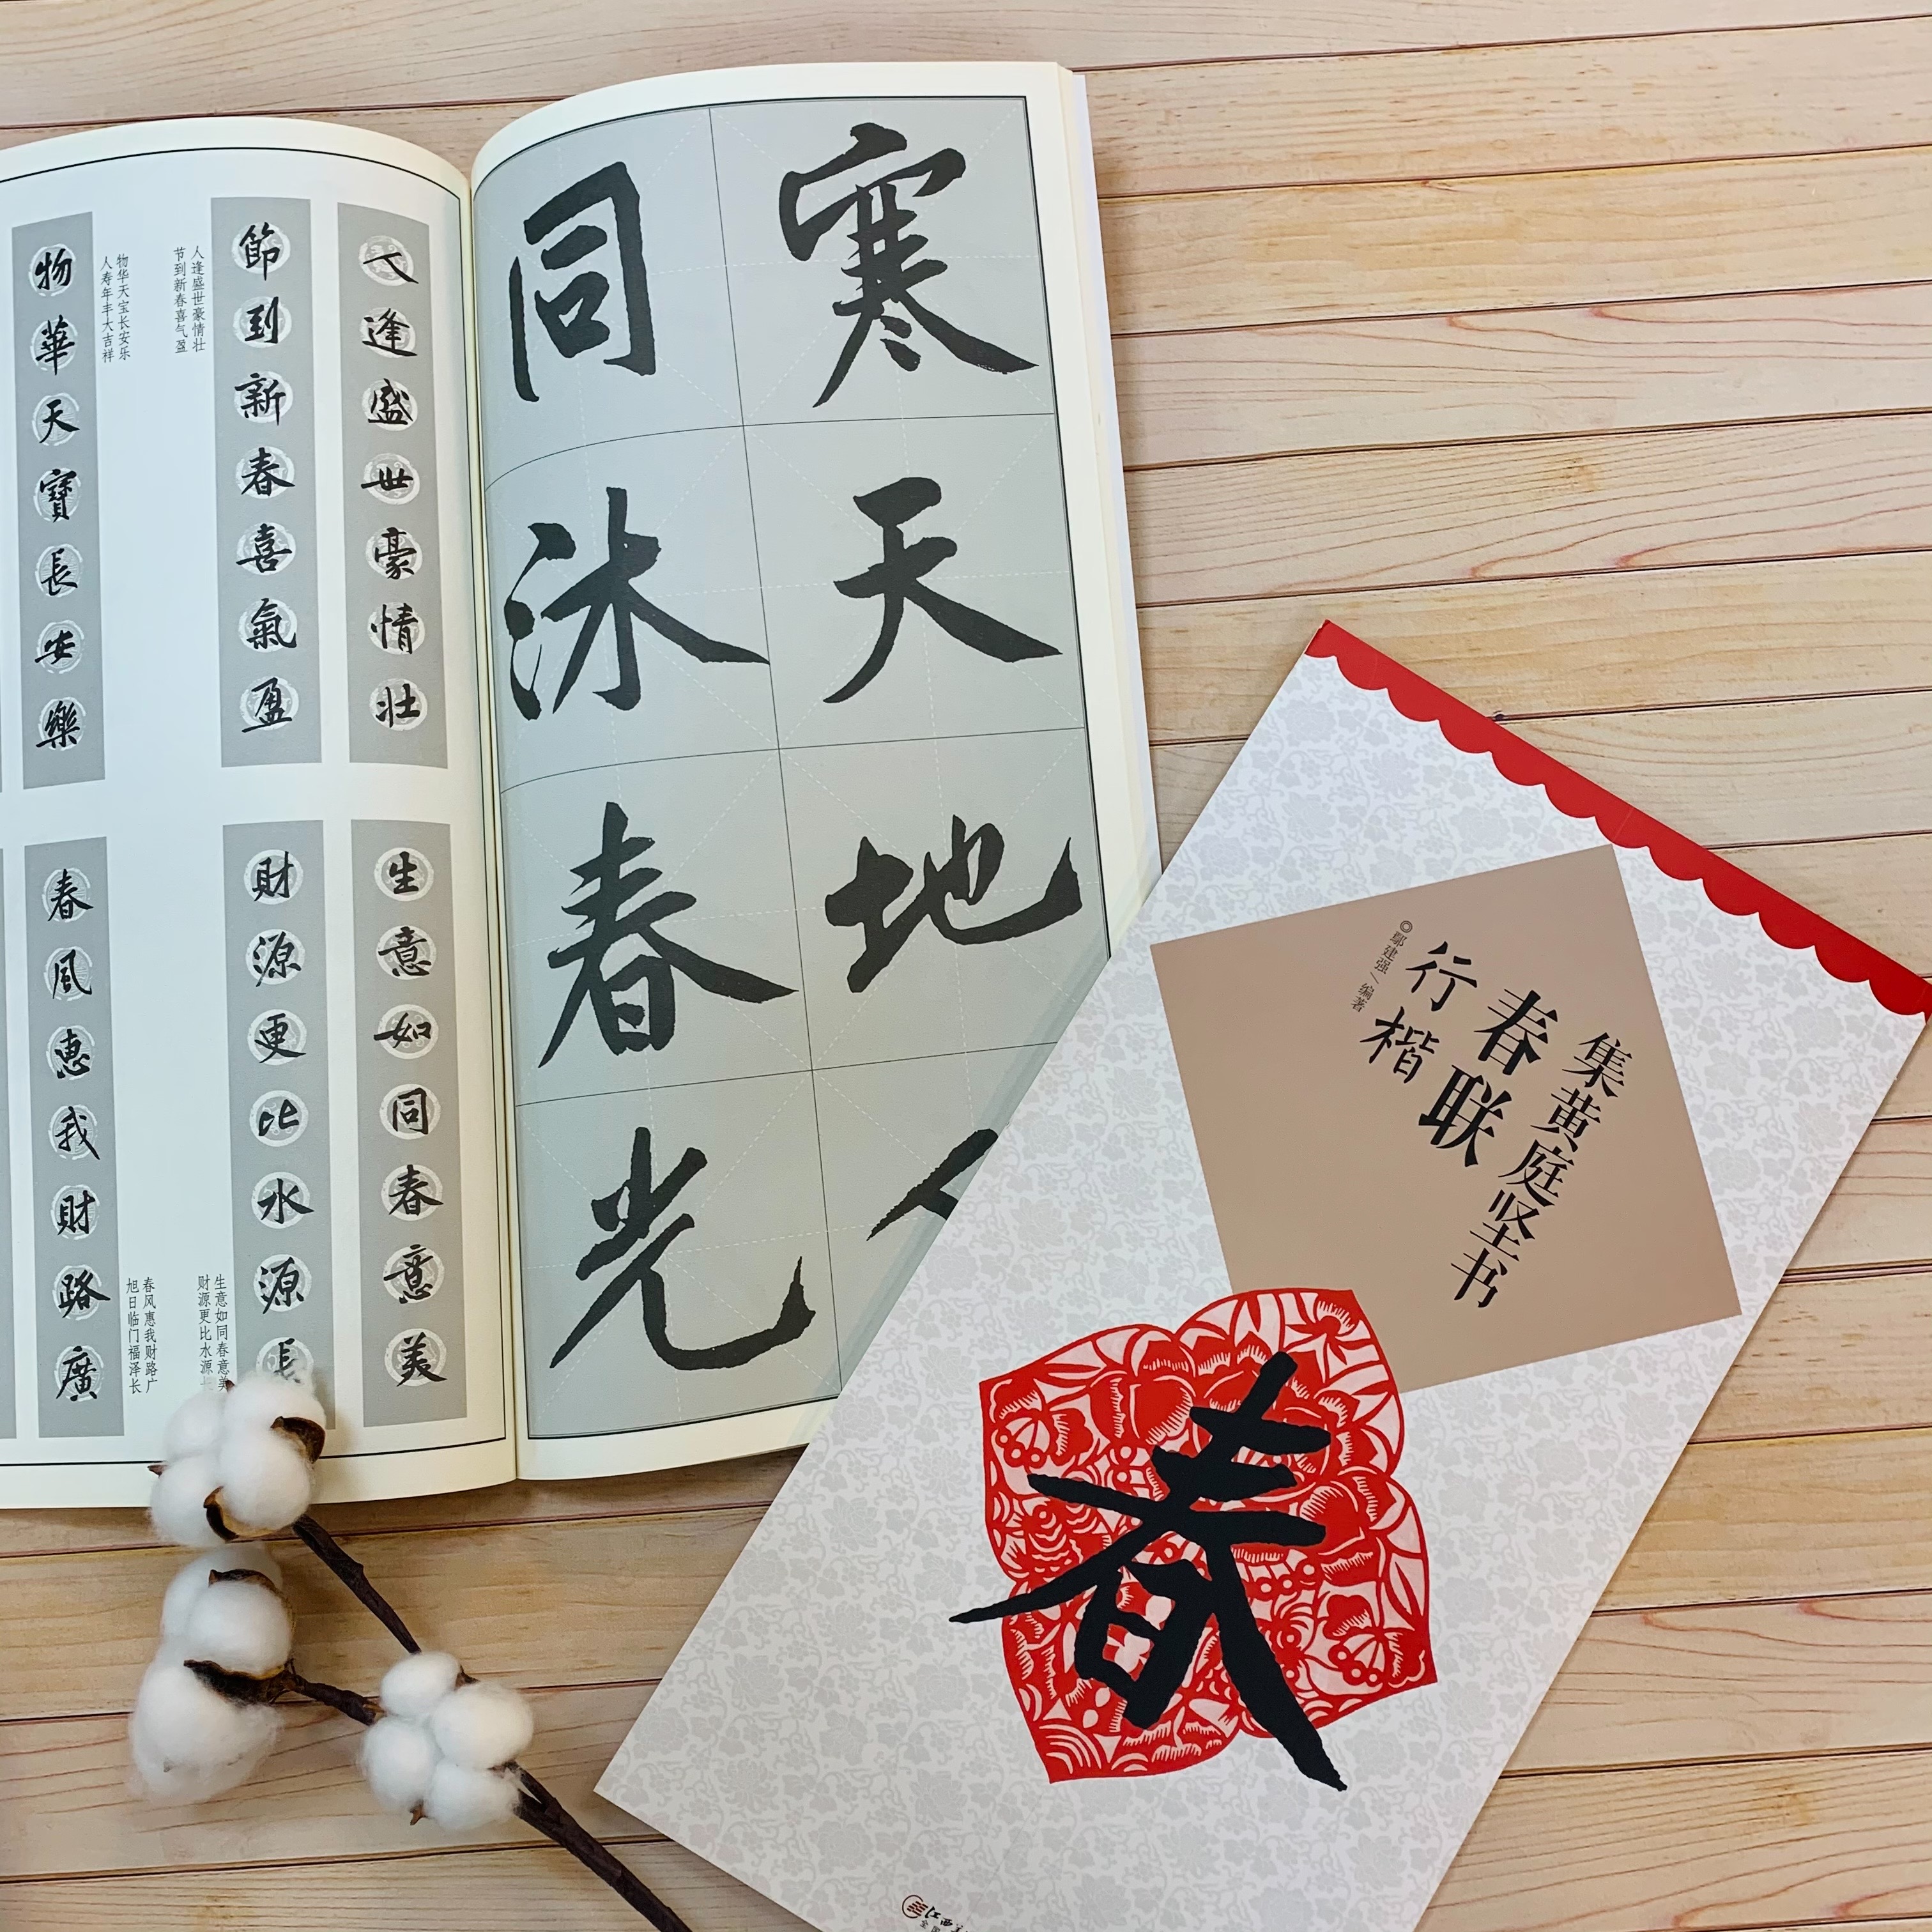 寒天地人
同沐春光
人逢盛世豪情壮
節到新春喜氣盈
人逢盛世豪情壮
节到新春喜气盈
物华天宝长安乐
人寿年丰大吉祥
物華天寶長安樂
生意如同春意美
財源更比水源長
生意如同春意美
财源更比水源长
春风惠我财路广
旭日临门福泽长
春風惠我財路廣
集黄庭坚书
春联
行楷
◎鄢建强/编著
春
江西美
全国